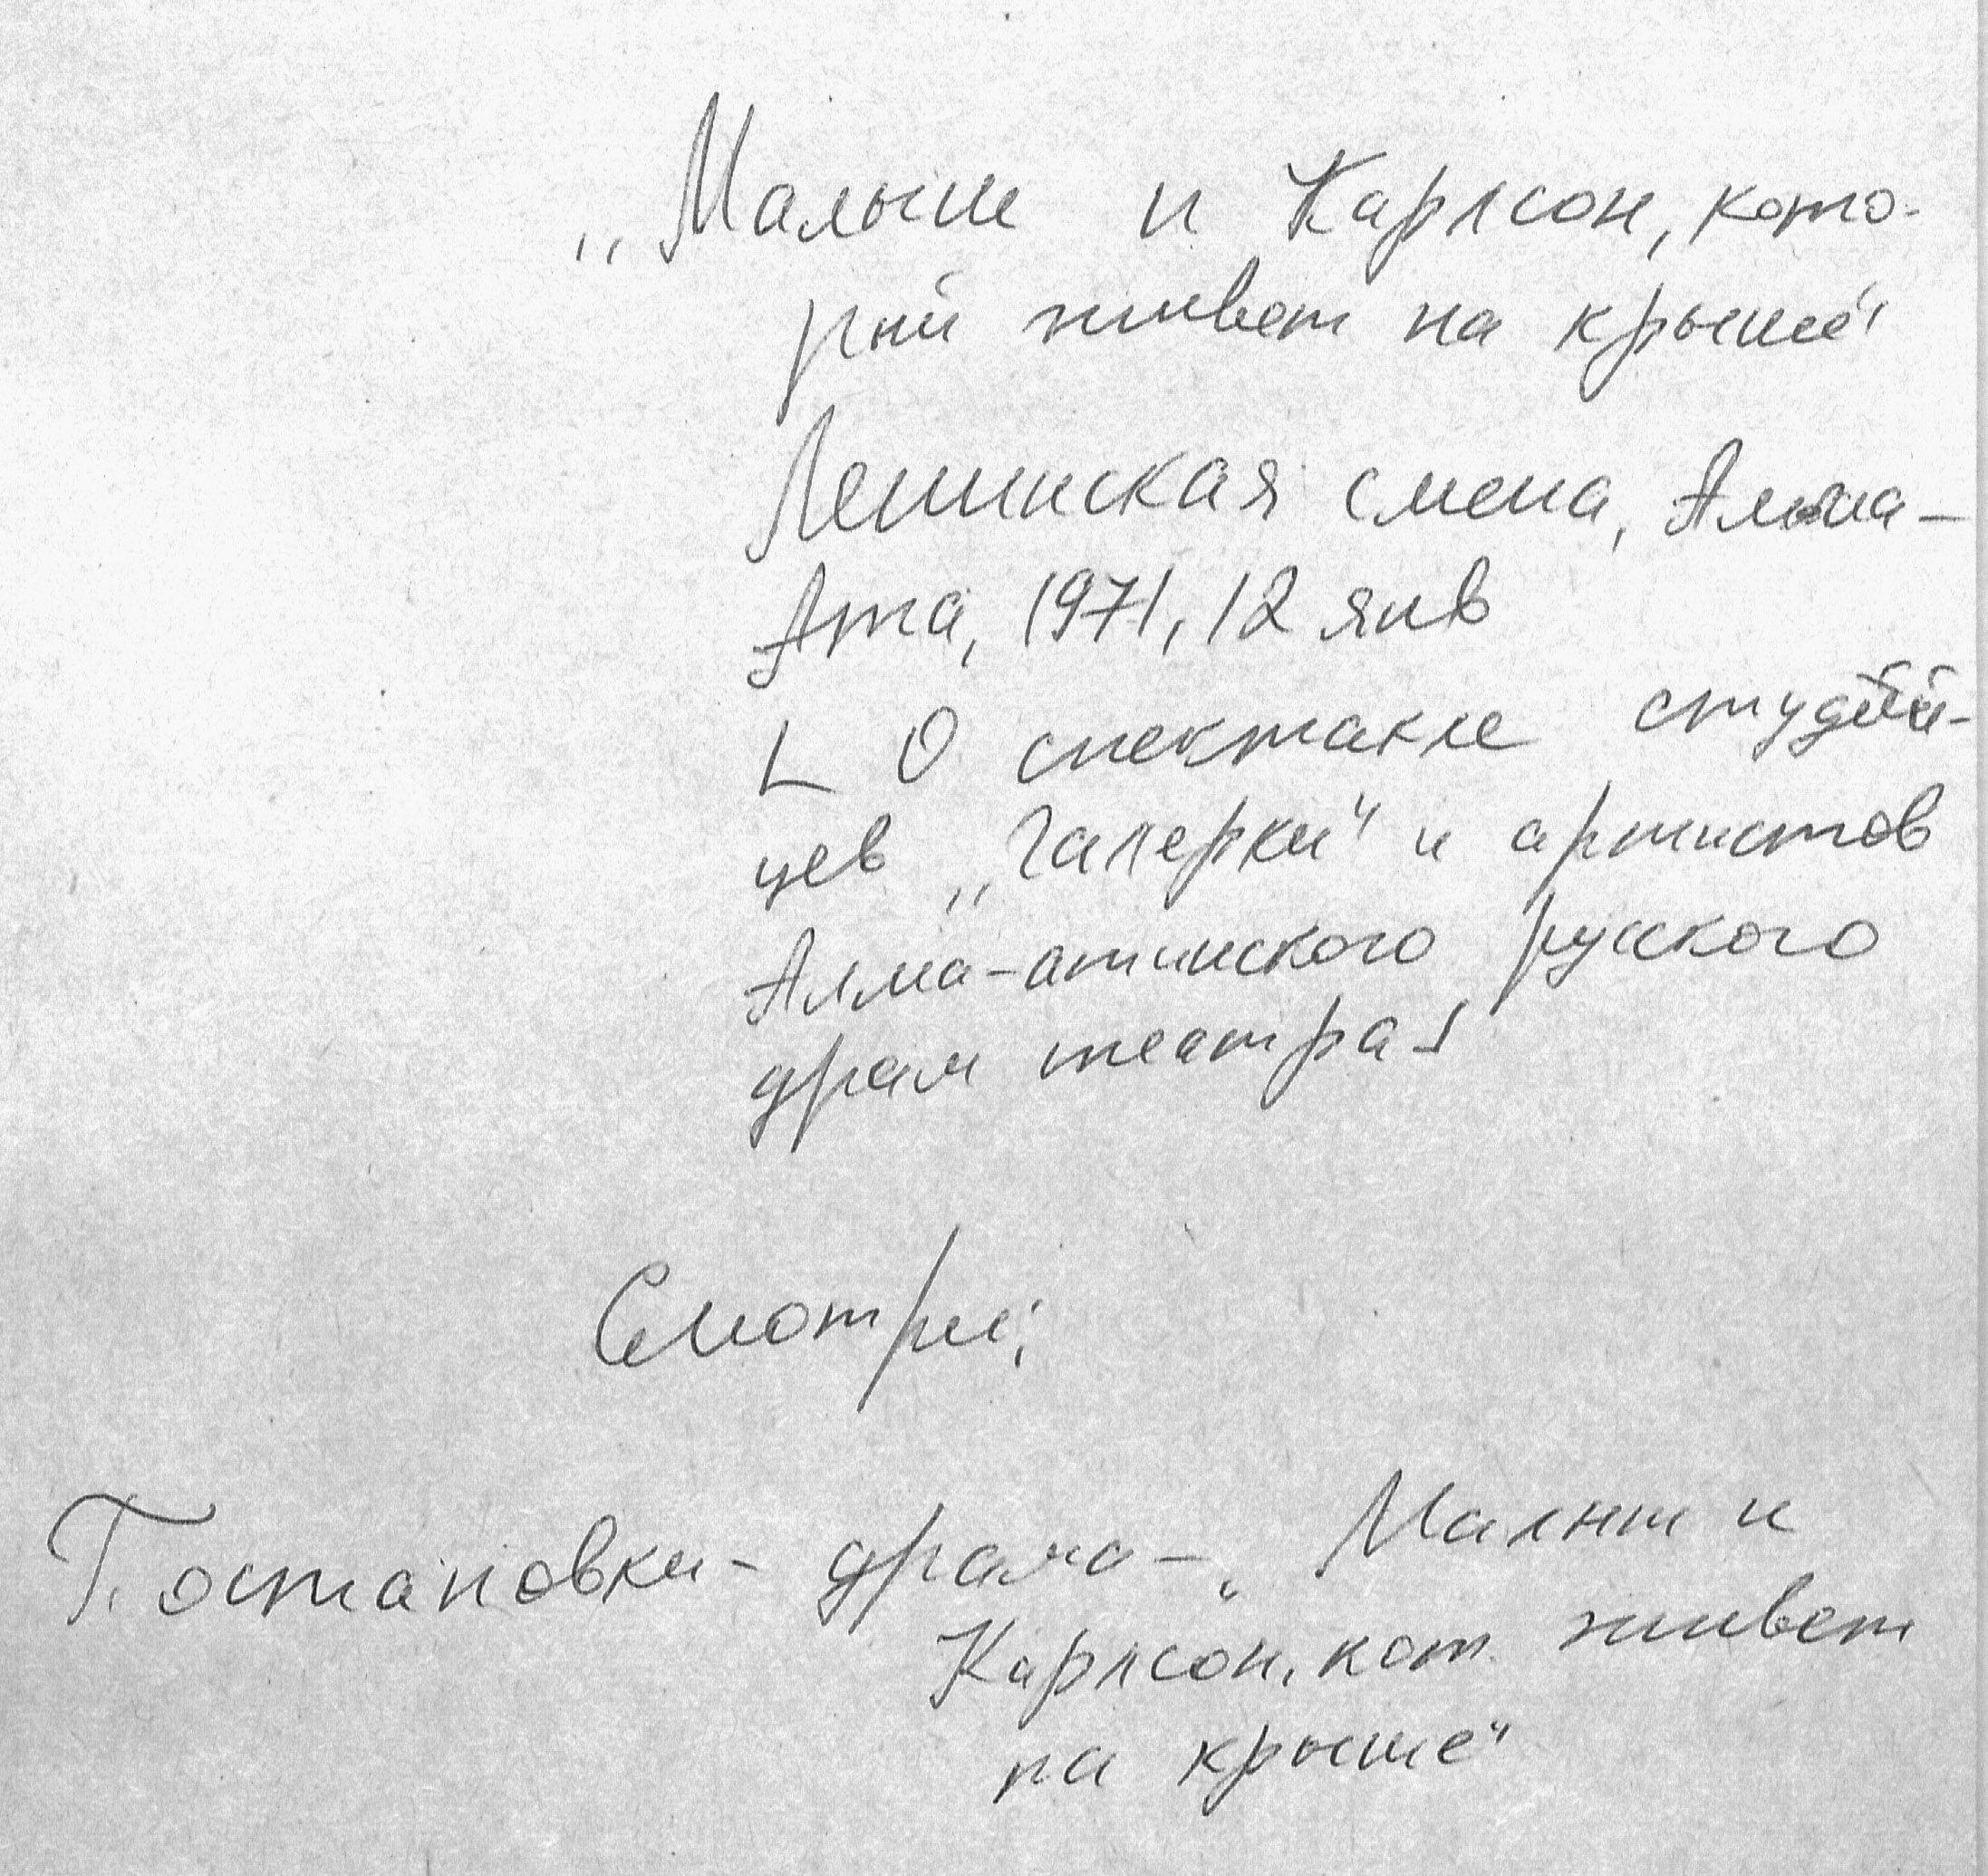 „Малыш и Карлсон, кото-
рый живет на крыше"
Ленинская смена, Алма-
Ата, 1971, 12 янв
[ О спектакле студий-
цев „Галерки" и артистов
Алма-атинского русского
драм театра]
Смотри:
Постановки - драма - „Малыш и
Карлсон, кот. живет
на крыше"